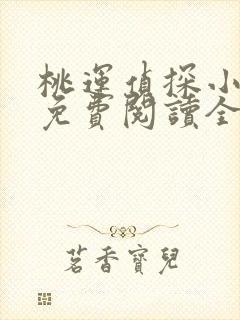 桃運偵探小
免費閱讀全
茗香寶兒